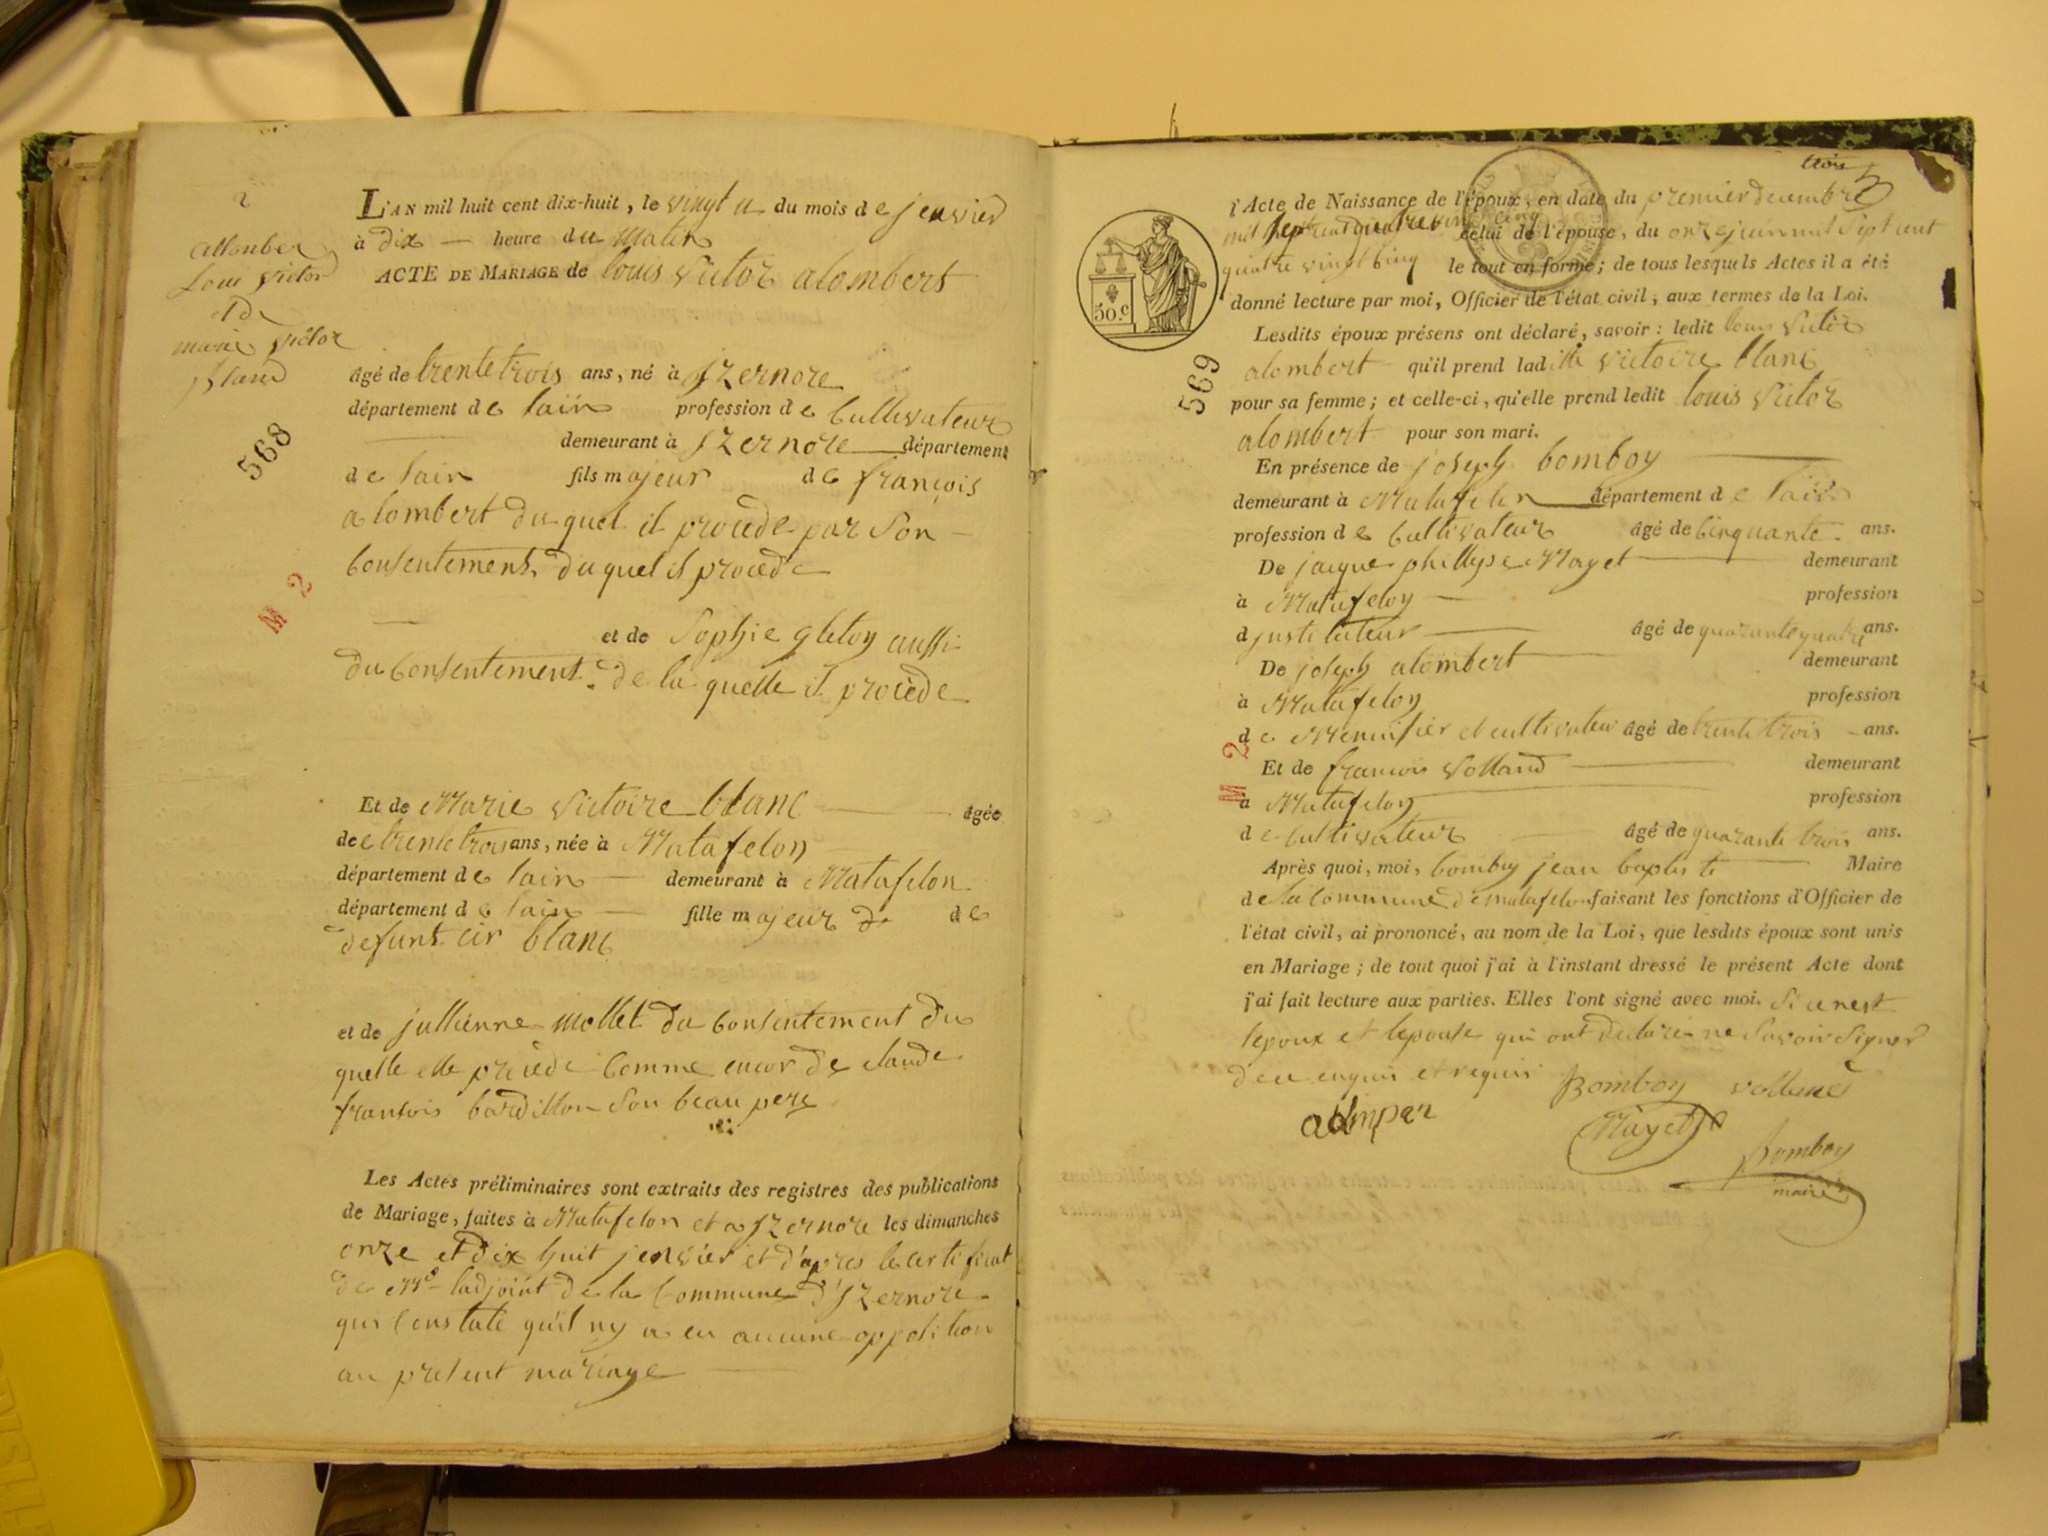 2
allonber
Loui victor
et de
marie victoz
blanc
568
M 2
L'AN mil huit cent dix-huit, le vingt u du mois de jenvier
à dix heure du matin
ACTE DE MARIAGE de louis Victor alombert
âgé de trente trois ans, né à jzernore
département de lain profession de Cultivateur
demeurant à jzernore département
de lain fils majeur de françois
alombert du quel il procède par son
Consentement duquel il procede
et de Sophie gleton aussi
du Consentement de la quelle il procède
Et de Marie Victoire blanc âgée
de trente trois ans, née à Matafelon
département de lain demeurant à Matafelon
département de lain fille majeur de de
defunt cir blanc
et de jullienne mollet du Consentement du
quelle elle procède Comme encor de claude
francois bardillon Son beau pere
Les Actes préliminaires sont extraits des registres des publications
de Mariage, faites à Matafelon et a jzernore les dimanches
onze et dix huit jenvier et d'apres le certificat
de Mr ladjoint de la Commune d'jzernore
qui Constate qu'il ny a eu aucune opposition
au present mariage
trois
3
50.c
569
M 2
l'Acte de Naissance de l'époux, en date du premier decembre
mil sept cent quatre vingt cinq celui de l'épouse, du onze juin mil sept cent
quatre vingt cinq le tout en forme; de tous lesquels Actes il a été
donné lecture par moi, Officier de l'état civil, aux termes de la Loi.
Lesdits époux présens ont déclaré, savoir: ledit louis Victor
alombert qu'il prend ladite victoire blanc
pour sa femme; et celle-ci, qu'elle prend ledit louis Victor
alombert pour son mari.
En présence de joseph bomboy
demeurant à Matafelon département de lain
profession de Cultivateur âgé de cinquante ans.
De jacque phillipe Mayet demeurant
à Matafelon profession
d justituteur âgé de quarante quatre ans.
De joseph alombert demeurant
à Matafelon profession
de Menuisier et cultivateur âgé de trente trois ans.
Et de francois Volland demeurant
à Matafelon profession
de cultivateur âgé de quarante trois ans.
Après quoi, moi, bomboy jean baptiste Maire
de la Commune de matafelon faisant les fonctions d'Officier de
l'état civil, ai prononcé, au nom de la Loi, que lesdits époux sont unis
en Mariage; de tout quoi j'ai à l'instant dressé le présent Acte dont
j'ai fait lecture aux parties. Elles l'ont signé avec moi. Si ce nest
lepoux et lepouse qui ont declaré ne Savoir Signer
de ce enquis et requis Bomboy
Mayet
Bomboy
maire